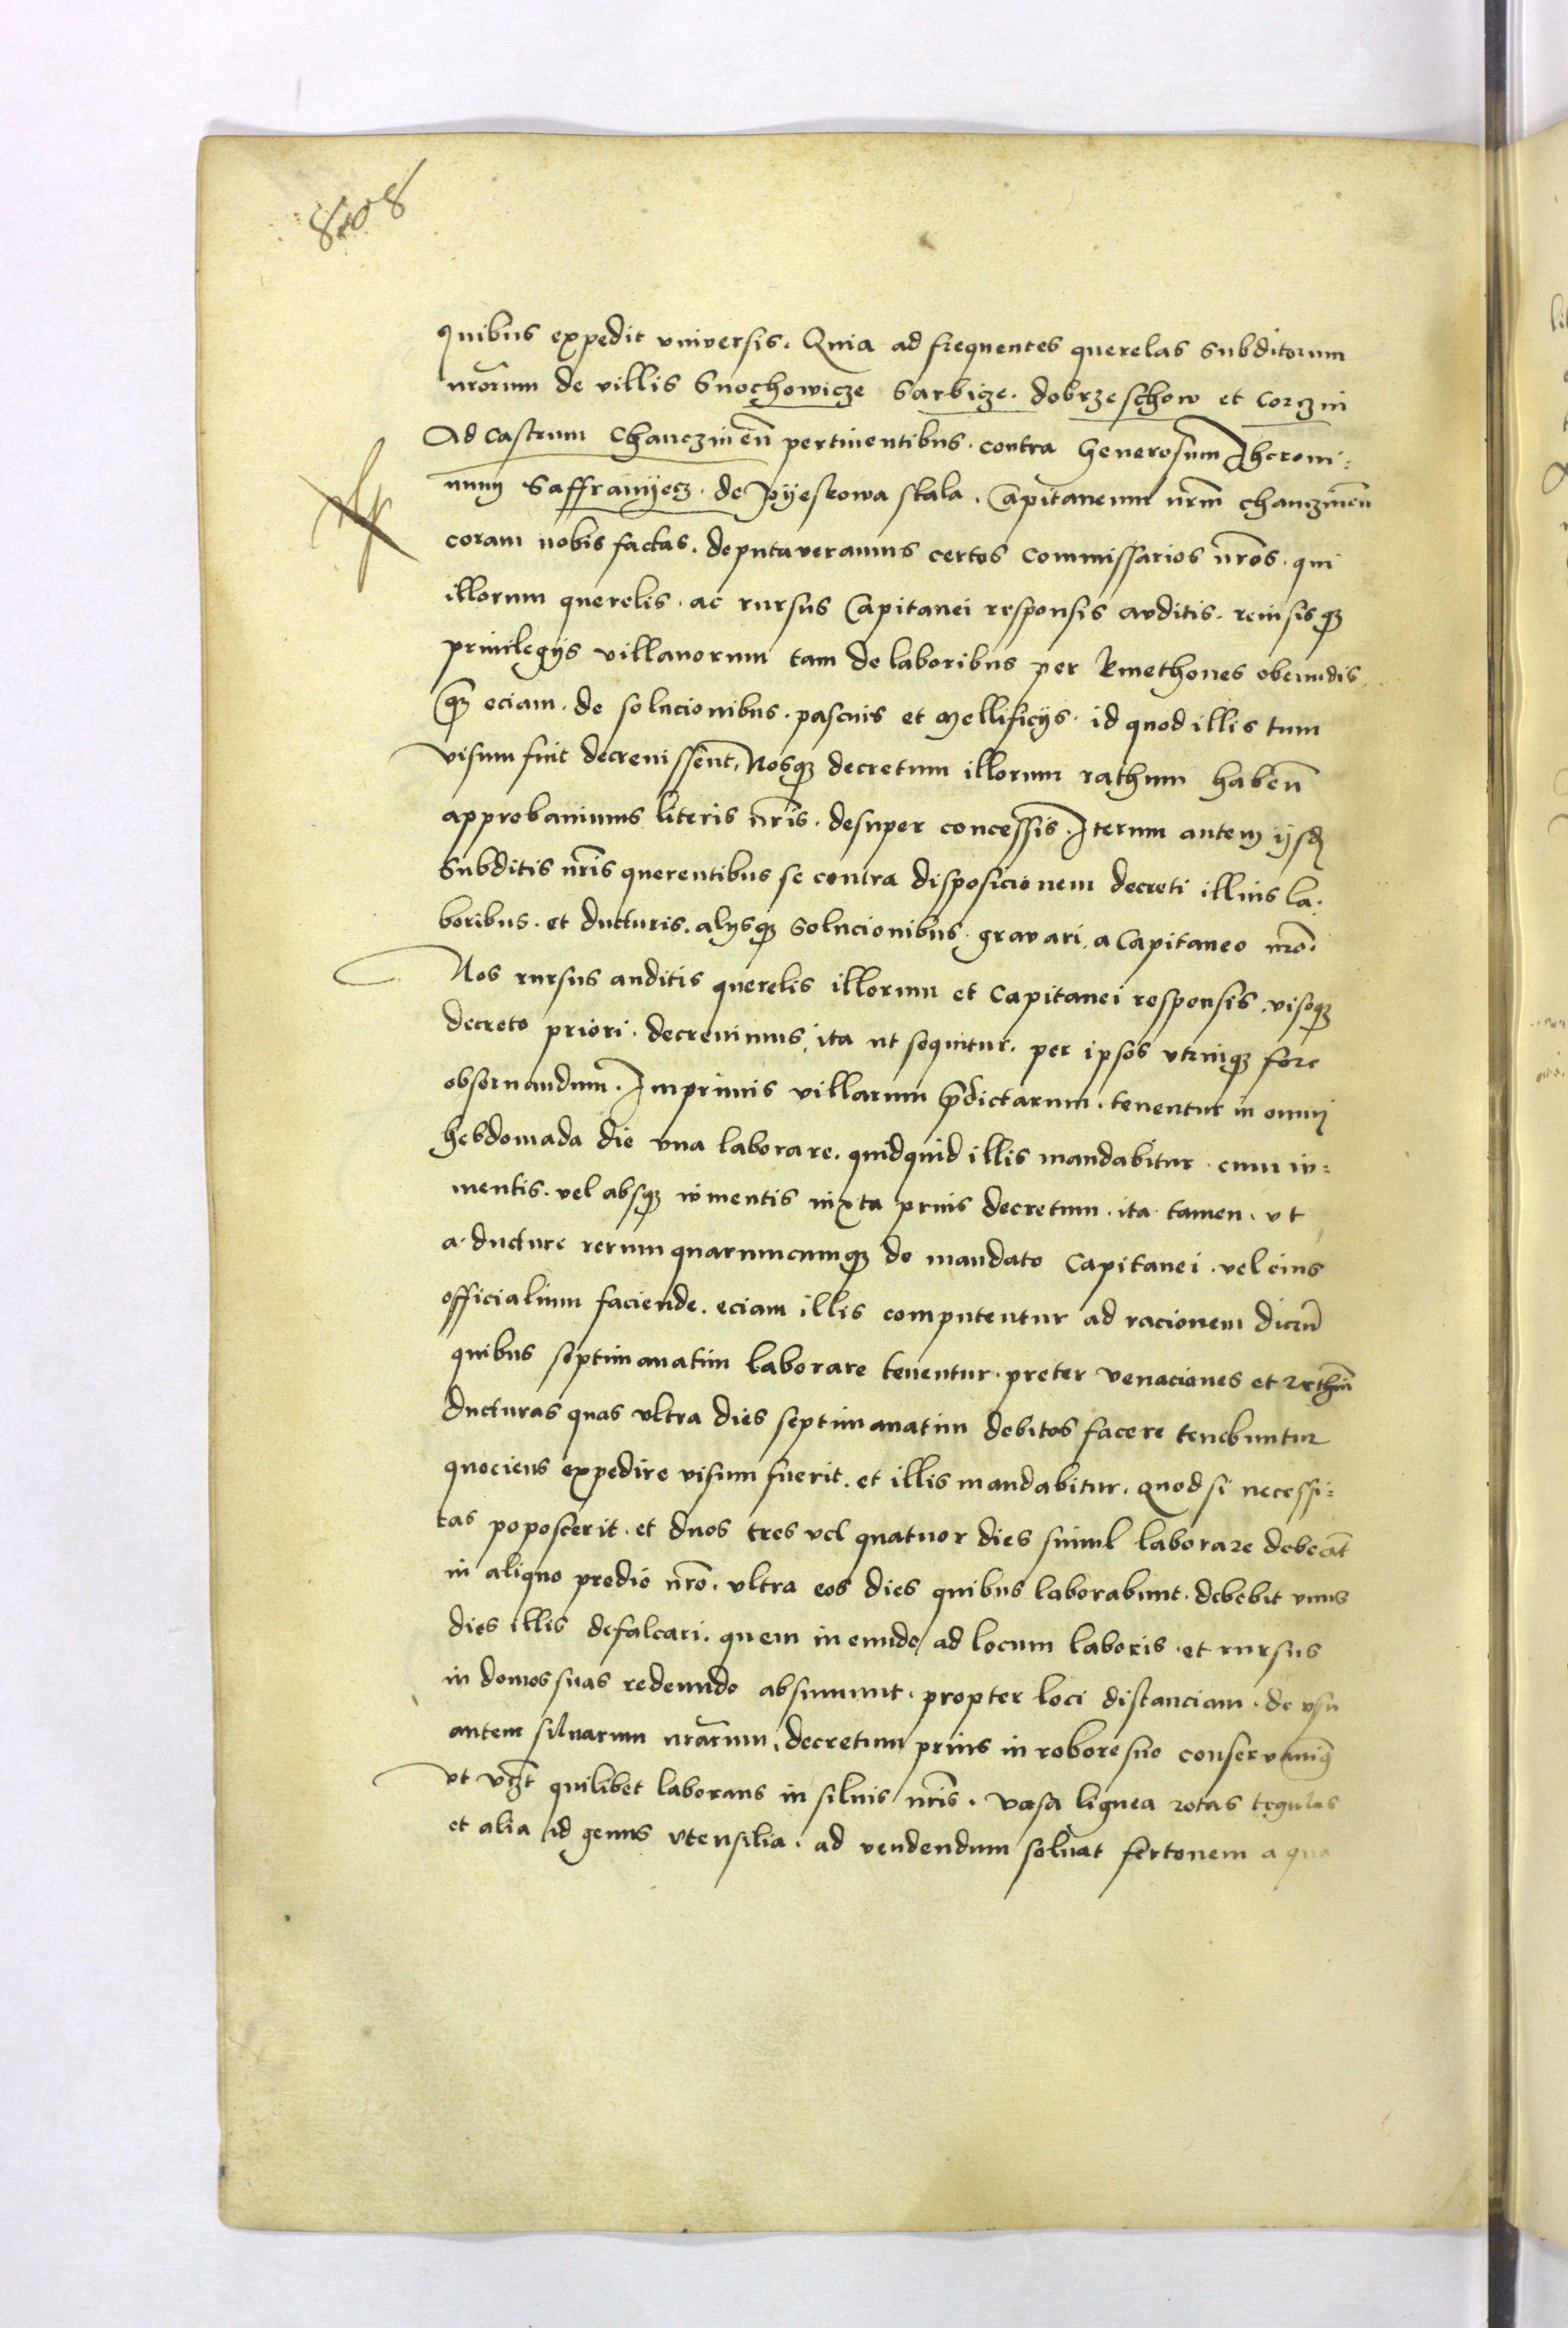 808
quibus expedit vniversis. Quia ad frequentes querelas subditorum
nrorum de villis Snochowicze Sarbicze. dobrzeschow et Corczin
Ad Castrum Chanczinen pertinentibus. contra Generosum Iheroni:
num Saffranyecz. de Pyeskowa skala. Capitaneum nrm chanczinen
coram nobis factas. deputaveramus certos Commissarios nros. qui
illorum querelis. ac rursus Capitanei responsis auditis. reuisisq3
priuilegijs villanorum tam de laboribus per kmethones obeundis.
q3 eciam. de solucionibus. pascuis et mellificijs. id quod illis tum
visum fuit decreuissent, Nosq3 decretum illorum rathum haben
approbauimus literis nris. desuper concessis. Iterum autem ijsd
Subditis nris querentibus se contra disposicionem decreti illius la:
boribus. et ducturis. alijsq3 solucionibus. gravari a Capitaneo nro.
Nos rursus auditis querelis illorum et Capitanei responsis. visoq3
decreto priori. decreuimus. ita ut sequitur. per ipsos vtrinq3 fore
obseruandum. Inprimis villarum pdictarum. tenentur in omni
hebdomada die vna laborare. quidquid illis mandabitur. cum iu:
mentis. vel absq3 iumentis iuxta prius decretum. ita tamen. vt
a. ducture rerum quarumcumq3 de mandato Capitanei. vel eius
officialium faciende. eciam illis computentur ad racionem dierum
quibus septimanatim laborare tenentur. preter venaciones et
ducturas quas vltra dies septimanatim debitos facere tenebuntur
quociens expedire visum fuerit. et illis mandabitur. Quod si necessi:
tas poposcerit. et duos tres vel quatuor dies simul laborare debeat
in aliquo predio nro. vltra eos dies quibus laborabunt. debebit vnus
dies illis defalcari. quem in eundo ad locum laboris. et rursus
in domos suas redeundo absumunt. propter loci distanciam. de vsu
autem siluarum nrarum, decretum prius in robore suo conservamus
vt vz quilibet laborans in siluis nris. vasa lignea rotas tegulas
et alia id genus vtensilia. ad vendendum soluat fertonem a qua